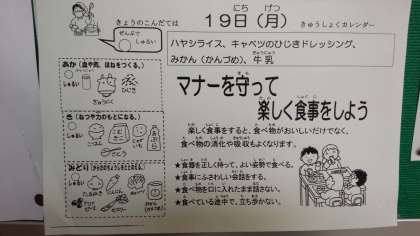 きょうのこんだては
19日（月）
にち げつ
きゅうしょくカレンダー
ぜんぶで
しゅるい
ハヤシライス、キャベツのひじきドレッシング、
みかん（かんづめ）、牛乳
ぎゅうにゅう
あか（血や肉、ほねをつくる。）
しゅるい
ぎゅうにく
ひじき
マナーを守って
楽しく食事をしよう
き（ねつや力のもとになる。）
しゅるい
ごはん
さとう
あぶら
楽しく食事をすると、食べ物がおいしいだけでなく、
食べ物の消化や吸収もよくなります。
みどり（からだのちょうしをととのえる。）
しゅるい
たまねぎ
にんじん
セロリー
★食器を正しく持って、よい姿勢で食べる。
★食事にふさわしい会話をする。
★食べ物を口に入れたまま話さない。
★食べている途中で、立ち歩かない。